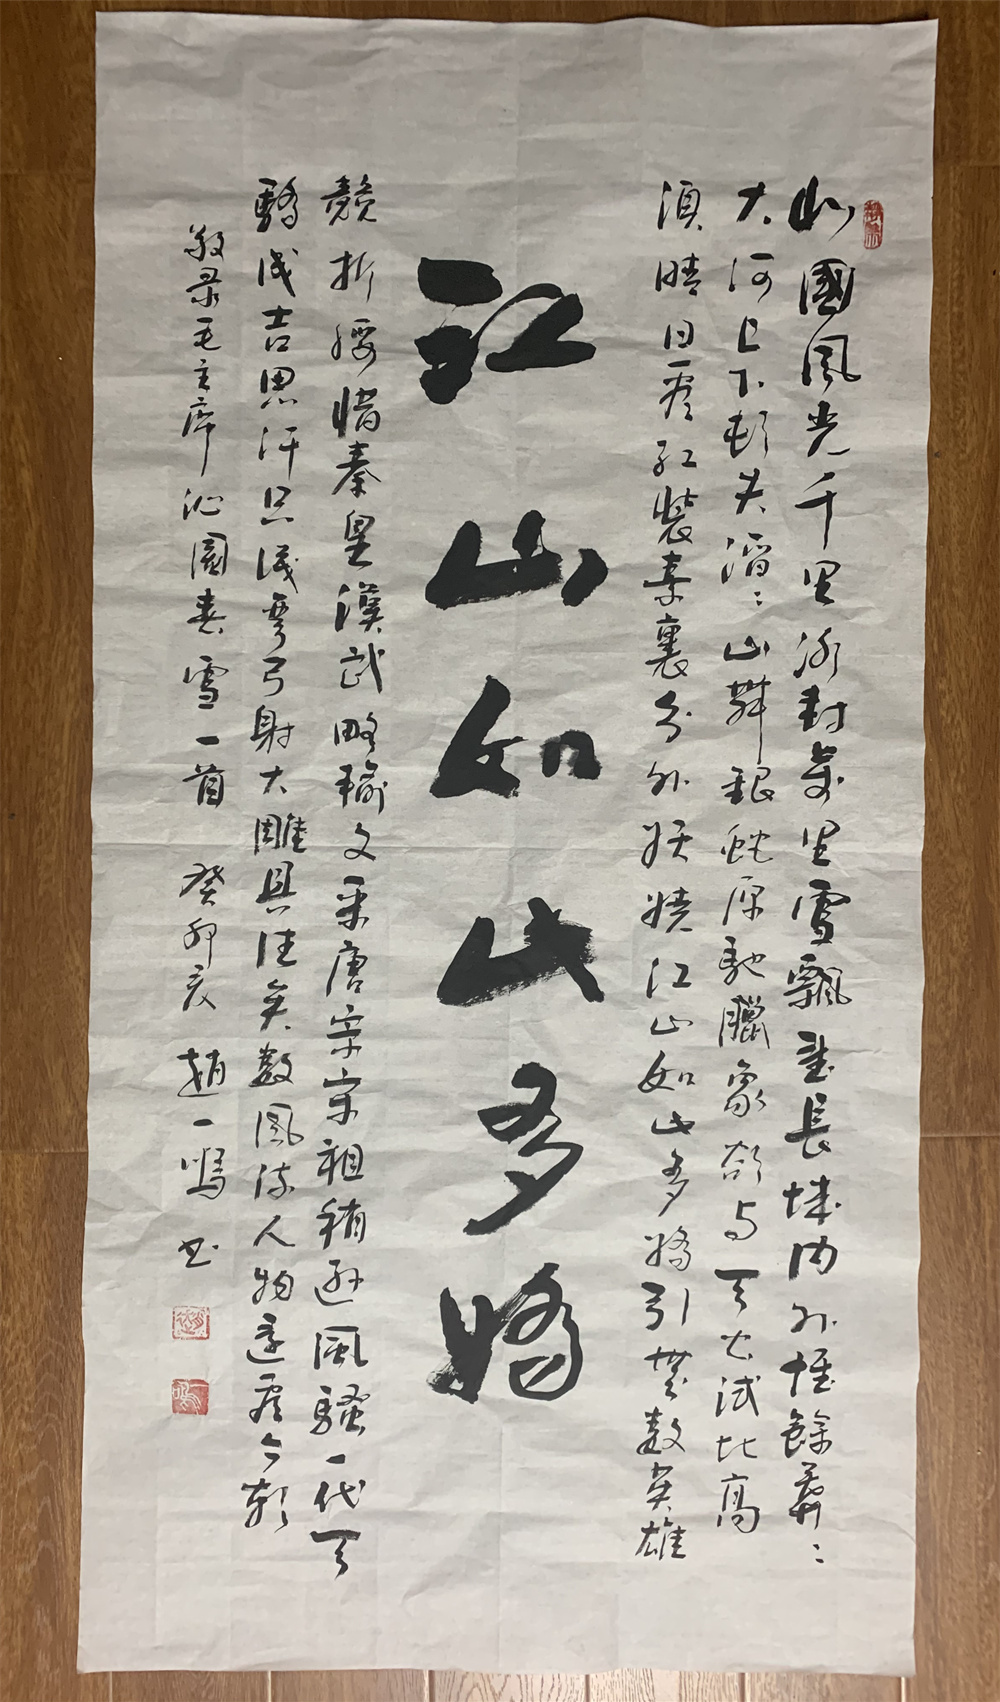 北國風光千里冰封萬里雪飄望長城内外惟餘莽〻
大河上下頓失滔〻山舞銀蛇原馳臘象欲与天公試比高
須晴日看紅裝素裹分外妖嬈江山如此多嬌引無數英雄
江山如此多嬌
競折腰惜秦皇漢武略輸文采唐宗宋祖稍遜風騷一代天
驕成吉思汗只識彎弓射大雕具往矣數風流人物還看今朝
敬录毛主席沁園春雪一首 癸卯夏 趙一鳴书